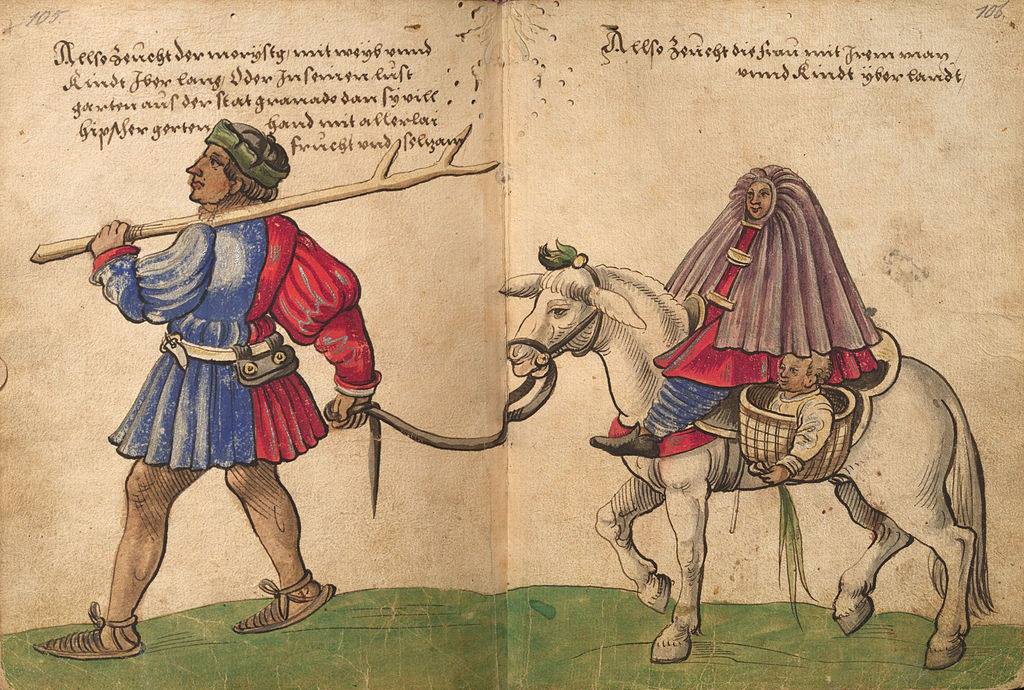 105
Allso zeücht der morystg mit weyb vnnd
Kindt Jber lang, Oder Jn seinen lust
garten aus der stat granado dan sy vill
hipscher gerten hand mit allerlai
frücht vnd selzam
106
Allso zeücht die frau mit Jrem man
vnnd Kindt yber landt,